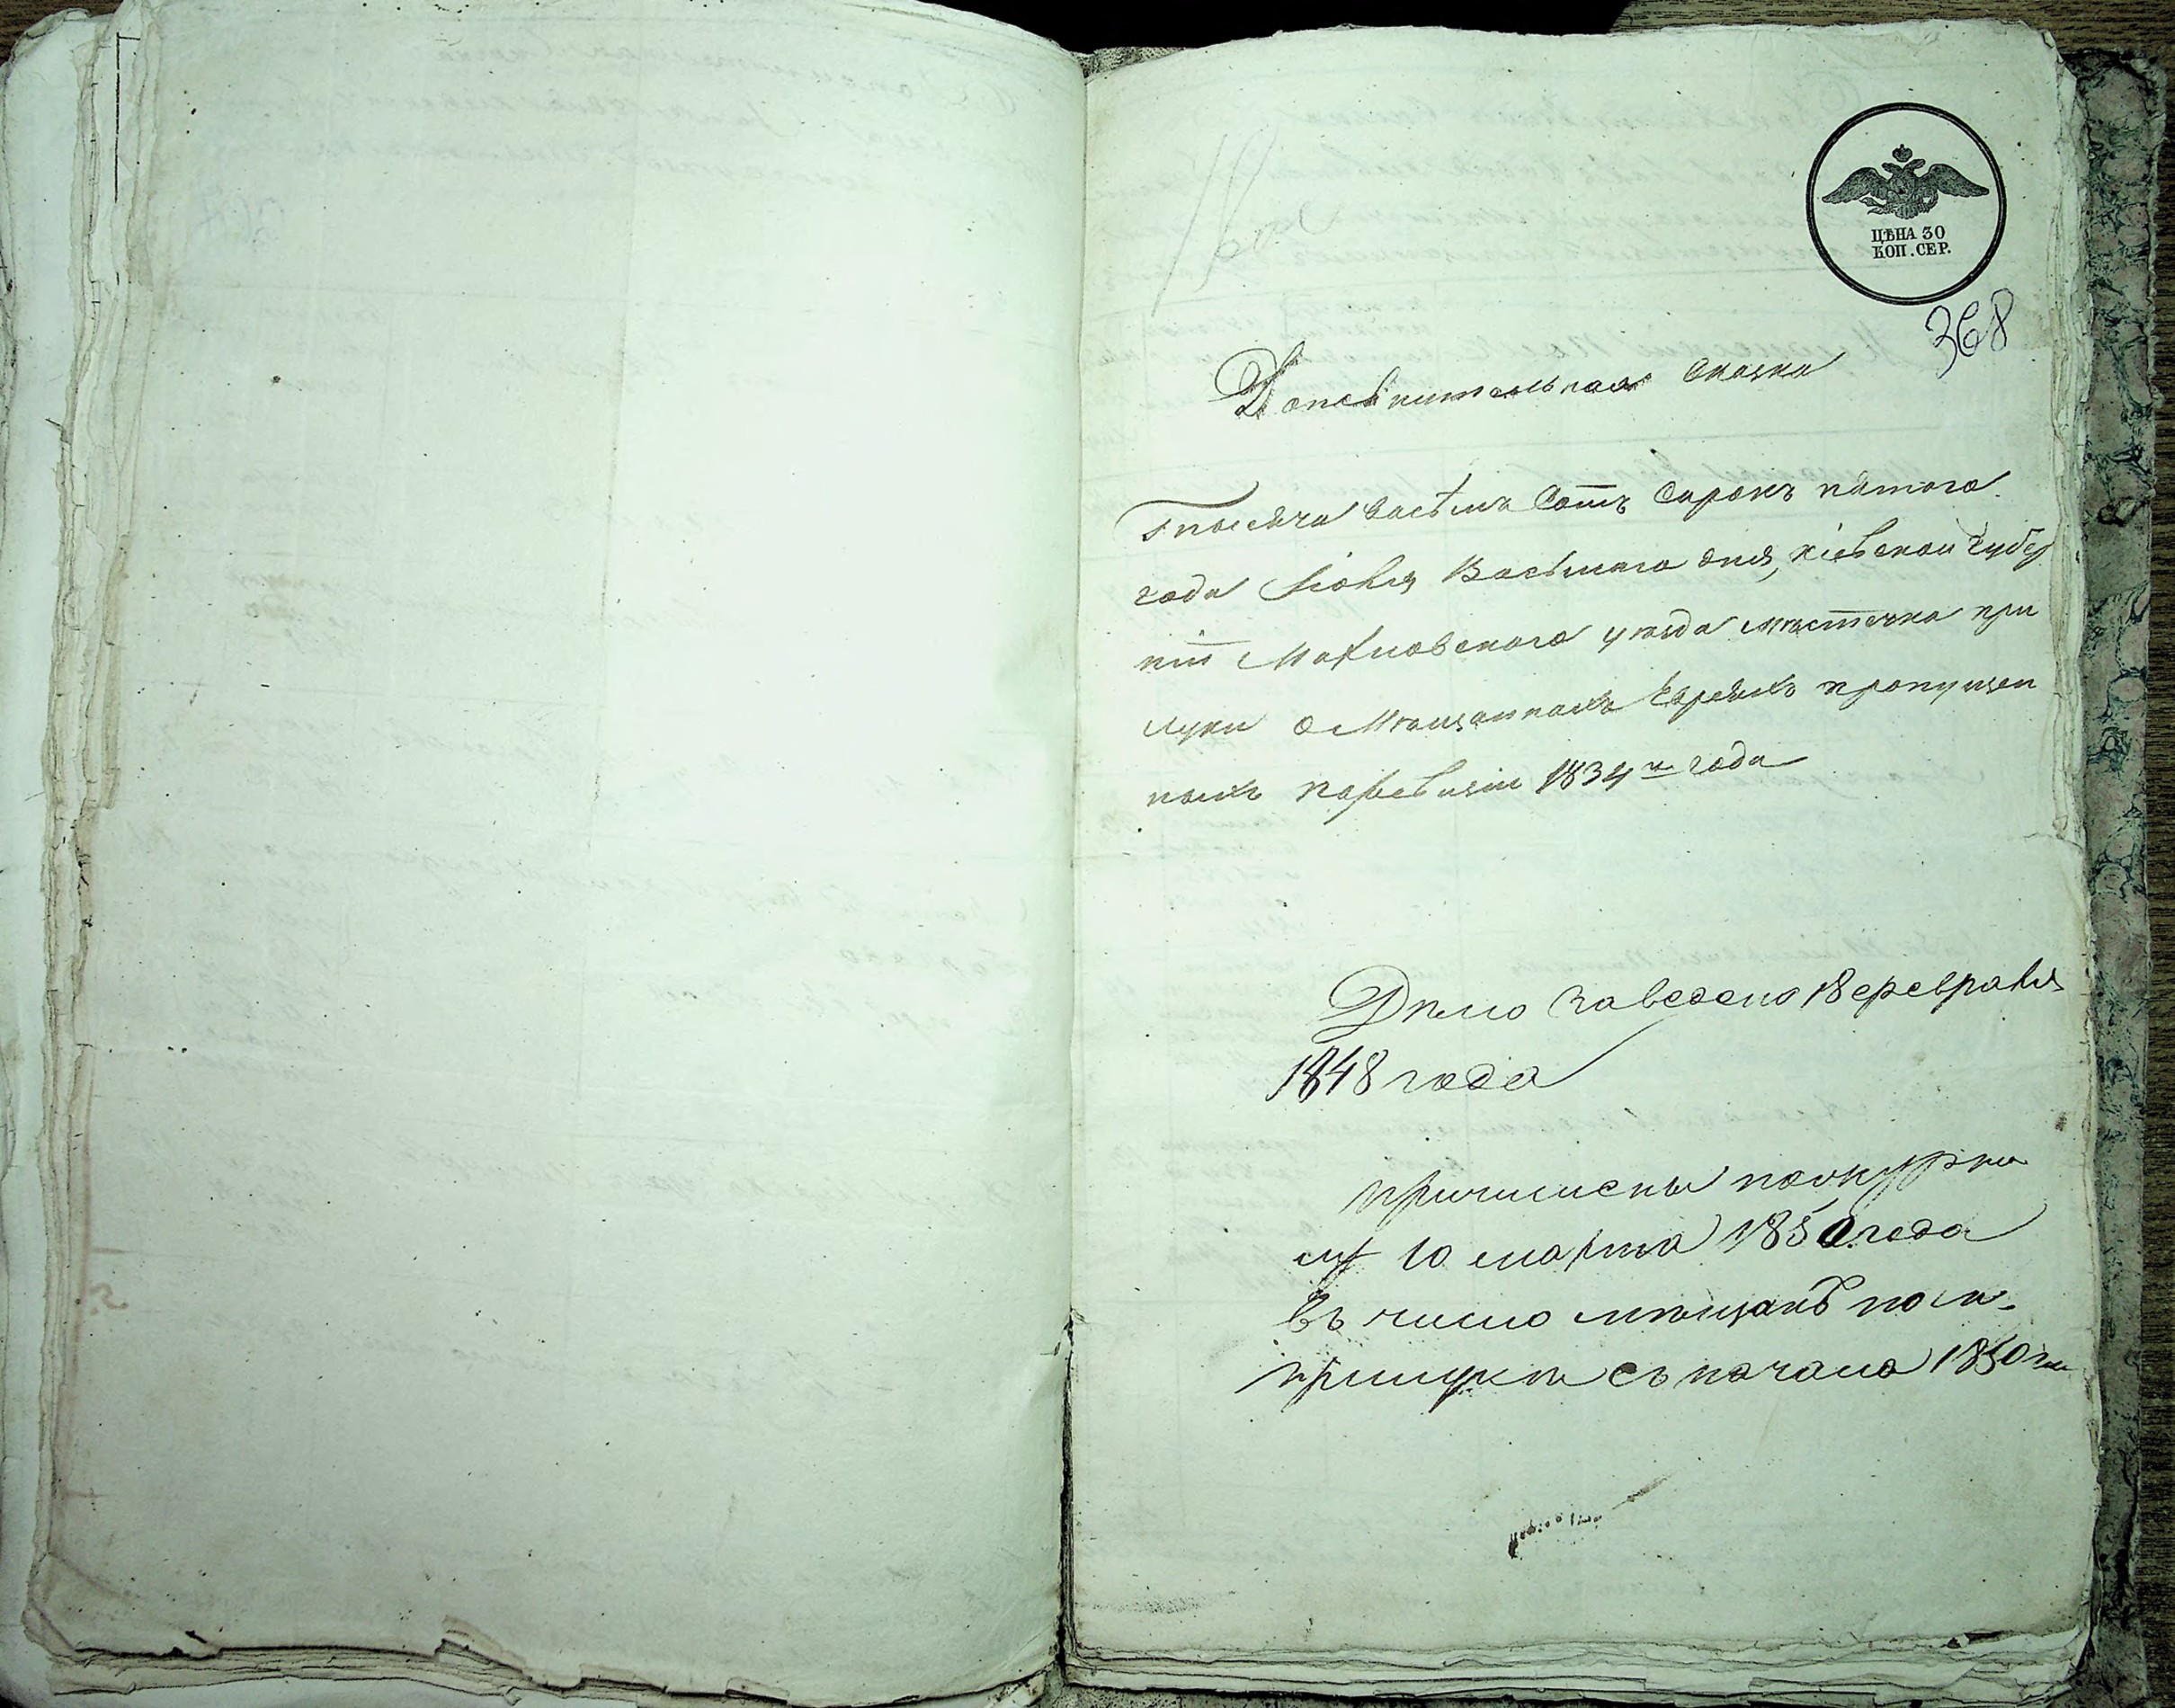 ЦѢНА 30
КОП. СЕР.
368
Дополнительная сказка
Тысяча восѣмъ Сотъ Сорокъ пятого
года Іюня Восьмаго дня, кіевской губер
ніи Махновскаго уѣзда мѣстечка При
луки о Мѣщанахъ Евреяхъ пропущен
ныхъ поревизіи 1834го года
Дѣло заведено 18 февраля
1848 года
причислены по
му 10 марта 1850 года
въ число мѣщанъ по м.
прилукѣ съ начала 1850 г.